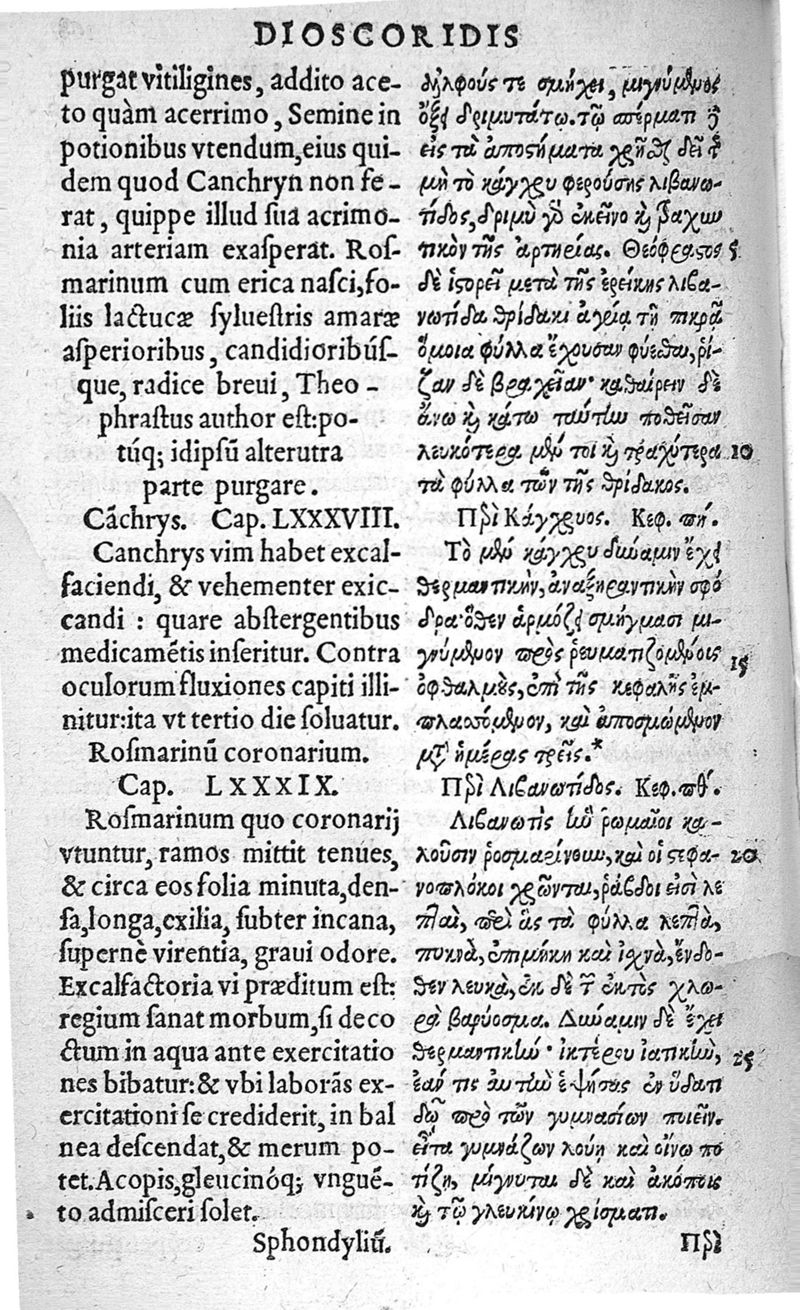 DIOSCORIDIS
purgat vitiligines, addito ace-
to quàm acerrimo, Semine in
potionibus vtendum, eius qui-
dem quod Canchryn non fe-
rat, quippe illud sua acrimo-
nia arteriam exasperat. Ros-
marinum cum erica nasci, fo-
liis lactucæ syluestris amaræ
asperioribus, candidioribús-
que, radice breui, Theo-
phrastus author est: po-
túq; idipsū alterutra
parte purgare.
Cāchrys. Cap. LXXXVIII.
Canchrys vim habet excal-
faciendi, & vehementer exic-
candi : quare abstergentibus
medicamētis inseritur. Contra
oculorum fluxiones capiti illi-
nitur: ita vt tertio die soluatur.
Rosmarinū coronarium.
Cap. LXXXIX.
Rosmarinum quo coronarij
vtuntur, ramos mittit tenues,
& circa eos folia minuta, den-
sa, longa, exilia, subter incana,
supernè virentia, graui odore.
Excalfactoria vi præditum est:
regium sanat morbum, si deco
ctum in aqua ante exercitatio
nes bibatur: & vbi laborās ex-
ercitationi se crediderit, in bal
nea descendat, & merum po-
tet. Acopis, gleucinóq; vnguē-
to admisceri solet.
Sphondyliū.
δηλφούς τε σμήχει, μιγνύμενος
ὄξει δριμυτάτῳ. τῷ σπέρματι δὲ
εἰς τὰ ἀποζήματα χρῆσθαι δεῖ τῆς
μὴ τὸ κάγχρυ φερούσης λιβανω-
τίδος, δριμὺ γὰρ ἐκεῖνο καὶ βραχυν
τικὸν τῆς ἀρτηρίας. Θεόφραστος 5
δὲ ἱστορεῖ μετὰ τῆς ἐρείκης λιβα-
νωτίδα θρίδακι ἀγρίᾳ τῇ πικρᾷ
ὅμοια φύλλα ἔχουσαν φύεσθαι, ῥί-
ζαν δὲ βραχεῖαν· καθαίρειν δὲ
ἄνω καὶ κάτω ταύτην ποθεῖσαν
λευκότερα μέν τοι καὶ τραχύτερα 10
τὰ φύλλα τῶν τῆς θρίδακος.
Περὶ Κάγχρυος. Κεφ. πη΄.
Τὸ μὲν κάγχρυ δύναμιν ἔχει
θερμαντικὴν, ἀναξηραντικὴν σφό
δρα· ὅθεν ἁρμόζει σμήγμασι μι-
γνύμενον πρὸς ῥευματιζομένοις 15
ὀφθαλμοὺς, ἐπὶ τῆς κεφαλῆς ἐμ-
πλασσόμενον, καὶ ἀποσμώμενον
μετὰ ἡμέρας τρεῖς.*
Περὶ Λιβανωτίδος. Κεφ. πθ΄.
Λιβανωτὶς ἣν ῥωμαῖοι κα-
λοῦσιν ῥοσμαρίνουμ, καὶ οἱ στεφα- 20
νοπλόκοι χρῶνται, ῥάβδοι εἰσὶ λε
πταὶ, περὶ ἃς τὰ φύλλα λεπτὰ,
πυκνὰ, ἐπιμήκη καὶ ἰχνὰ, ἔνδο-
θεν λευκὰ, ἐκ δὲ τοῦ ἐκτὸς χλω-
ρὰ βαρύοσμα. Δύναμιν δὲ ἔχει
θερμαντικὴν· ἰκτέρου ἰατικὴν, 25
ἐάν τις αὐτὴν ἑψήσας ἐν ὕδατι
δῷ πρὸ τῶν γυμνασίων ποιεῖν.
εἶτα γυμνάζων λούῃ καὶ οἴνῳ πο
τίζῃ, μίγνυται δὲ καὶ ἀκόποις
καὶ τῷ γλευκίνῳ χρίσματι.
Περὶ